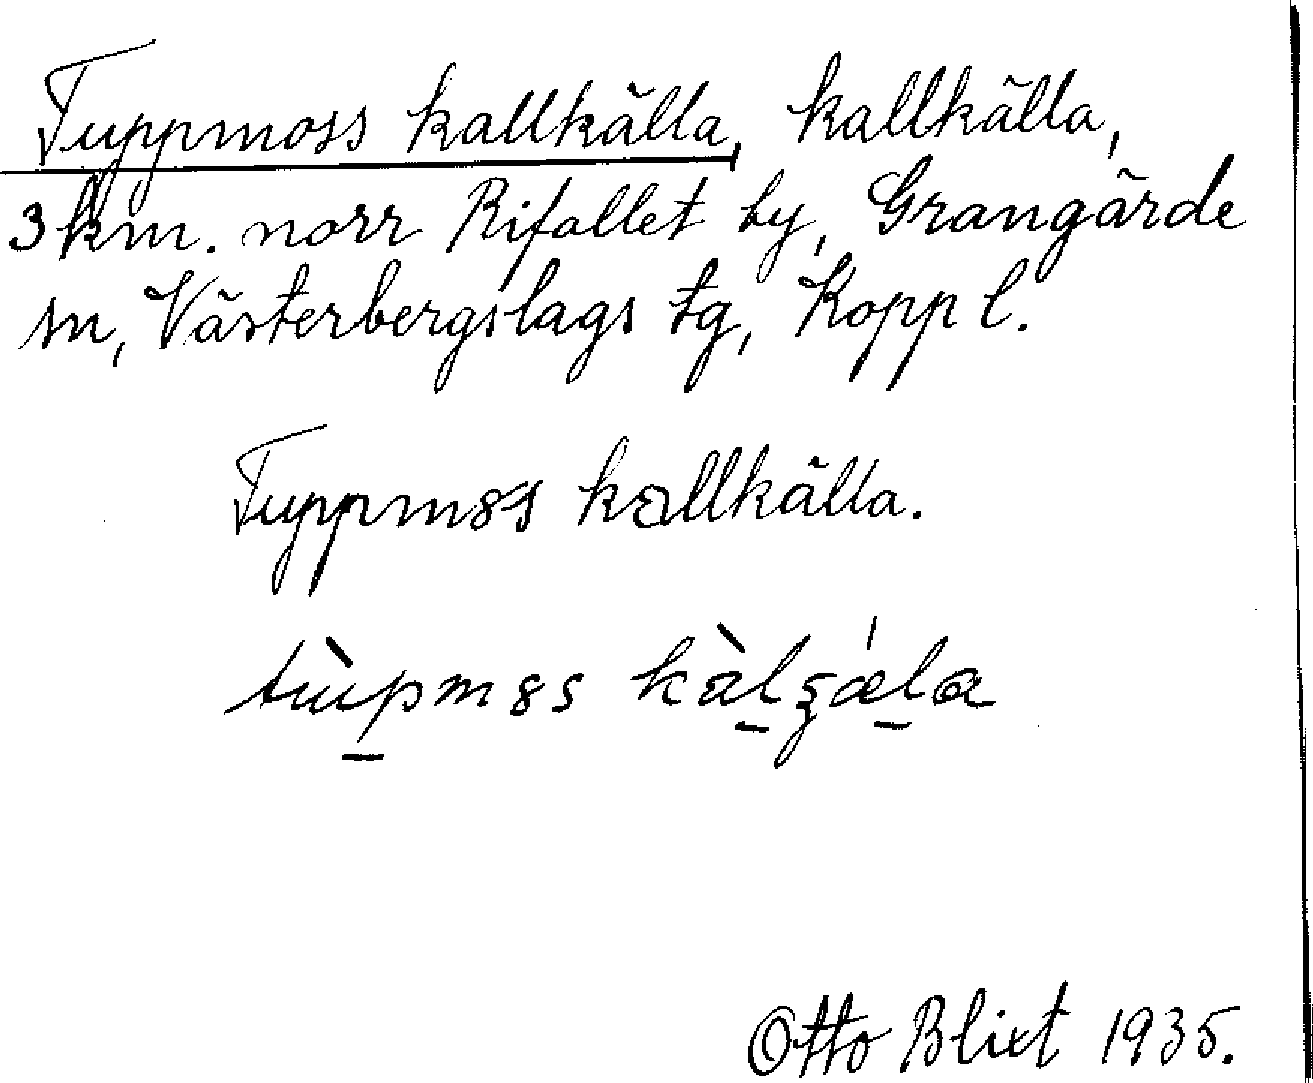 Tuppmoss kallkälla, kallkälla,
3 km. norr Rifallet by, Grangärde
sn, Västerbergslags tg, Kopp l.
Tuppm8s kallkälla.
tùpm8s kàlʒǽla
Otto Blixt 1935.